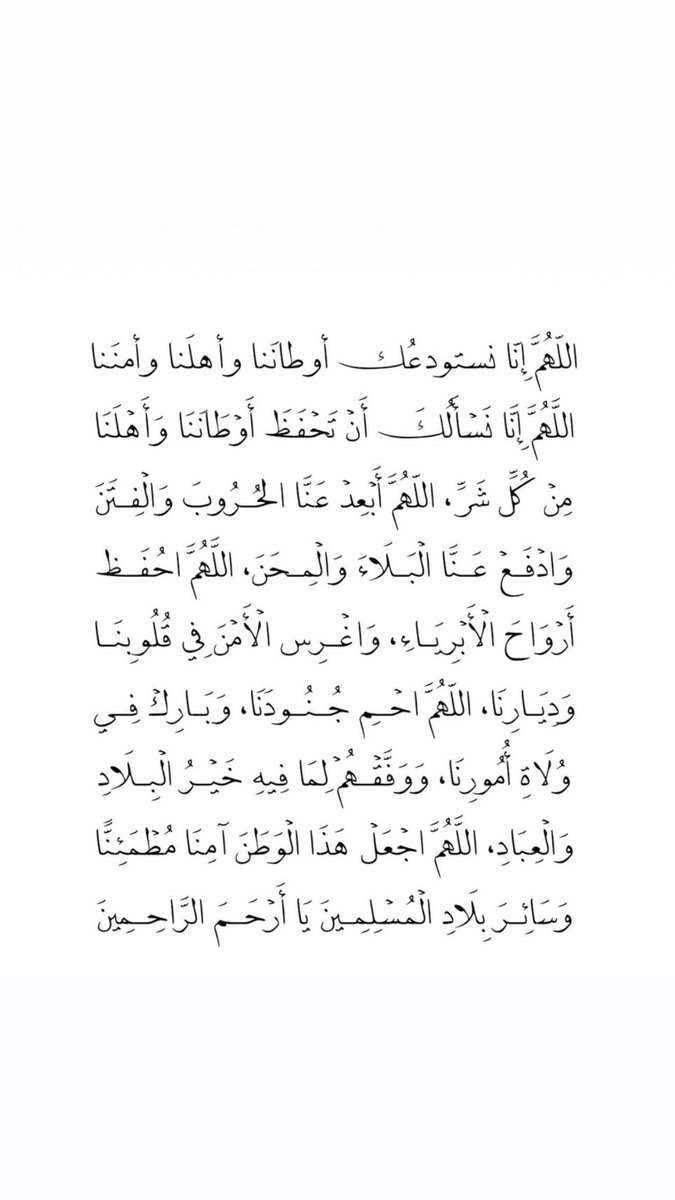 اللّهُمَّ إنّا نستودعُك أوطانَنا وأهلَنا وأمنَنا
اللَّهُمَّ إِنَّا نَسْأَلُكَ أَنْ تَحْفَظَ أَوْطَانَنَا وَأَهْلَنَا
مِنْ كُلِّ شَرٍّ، اللَّهُمَّ أَبْعِدْ عَنَّا الْحُرُوبَ وَالْفِتَنَ
وَادْفَعْ عَنَّا الْبَلَاءَ وَالْمِحَنَ، اللَّهُمَّ احْفَظ
أَرْوَاحَ الْأَبْرِيَاءِ، وَاغْرِس الْأَمْنَ فِي قُلُوبِنَا
وَدِيَارِنَا، اللَّهُمَّ احْمِ جُنُودَنَا، وَبَارِكْ فِي
وُلَاةِ أُمُورِنَا، وَوَفِّقْهُمْ لِمَا فِيهِ خَيْرُ الْبِلَادِ
وَالْعِبَادِ، اللَّهُمَّ اجْعَلْ هَذَا الْوَطَنَ آمِنَا مُطْمَئِنًّا
وَسَائِرَ بِلَادِ الْمُسْلِمِينَ يَا أَرْحَمَ الرَّاحِمِينَ